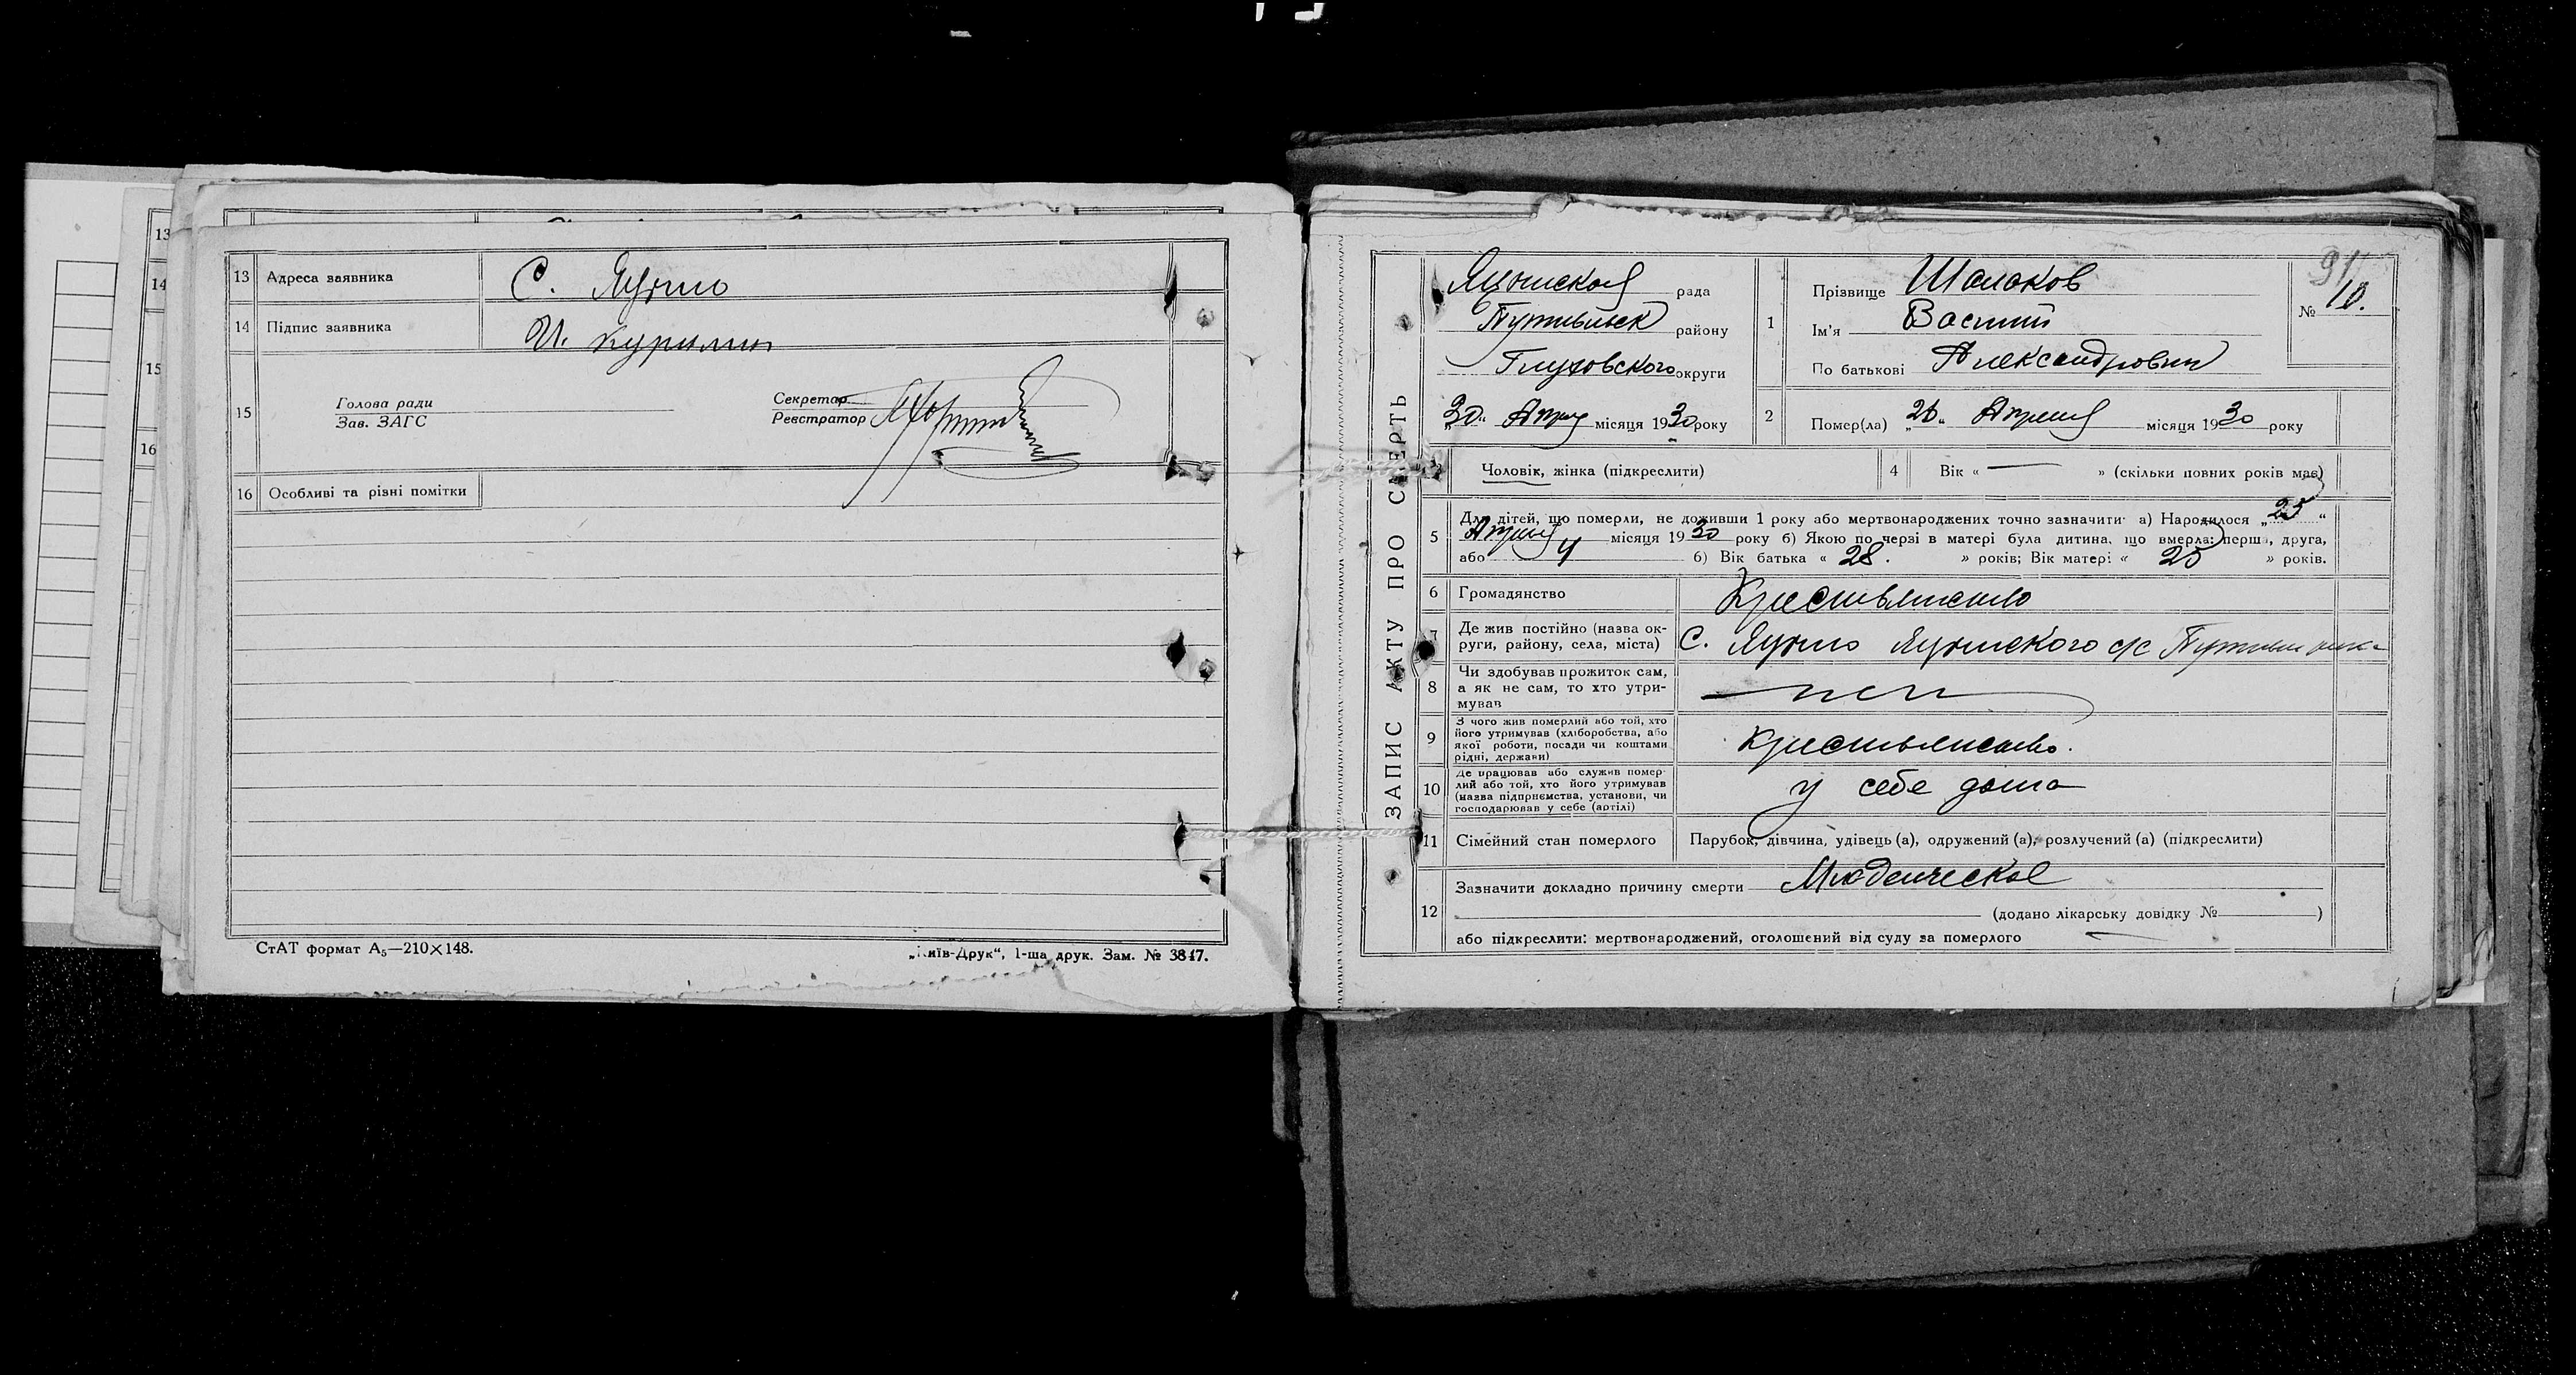 13
14
15
16
13 Адреса заявника С. Яцыно
14 Підпис заявника И. Курилин
15 Голова ради
Зав. ЗАГС
Секретар
Реєстратор
16 Особливі та різні помітки
СтАТ формат А5—210×148.
„Київ-Друк“, 1-ша друк. Зам. № 3847.
ЗАПИС АКТУ ПРО СМЕРТЬ
91
№ 10.
Яцынская рада
Путивльск району
Глуховского округи
„30“ Апр місяця 1930 року
1 Прізвище Шалаков
Ім'я Васили
По батькові Александрович
2 Помер(ла) „26“ Апреля місяця 1930 року
3 Чоловік, жінка (підкреслити)
4 Вік « — » (скільки повних років мав)
5 Для дітей, що померли, не доживши 1 року або мертвонароджених точно зазначити: а) Народилося „25“
Апреля місяця 1930 року б) Якою по черзі в матері була дитина, що вмерла: перша, друга,
або 4 б) Вік батька « 28. » років; Вік матері « 25 » років.
6 Громадянство Крестьянство
7 Де жив постійно (назва ок-
руги, району, села, міста) С. Яцыно Яцынского с/с Путивл
8 Чи здобував прожиток сам,
а як не сам, то хто утри-
мував
9 З чого жив померлий або той, хто
його утримував (хліборобства, або
якої роботи, посади чи коштами
рідні, держави) Крестьянство.
10 Де працював або служив помер-
лий або той, хто його утримував
(назва підприємства, установи, чи
господарював у себе (артілі) у себе дома
11 Сімейний стан померлого Парубок, дівчина, удівець (а), одружений (а), розлучений (а) (підкреслити)
12 Зазначити докладно причину смерти Младенческая
(додано лікарську довідку № )
або підкреслити: мертвонароджений, оголошений від суду за померлого